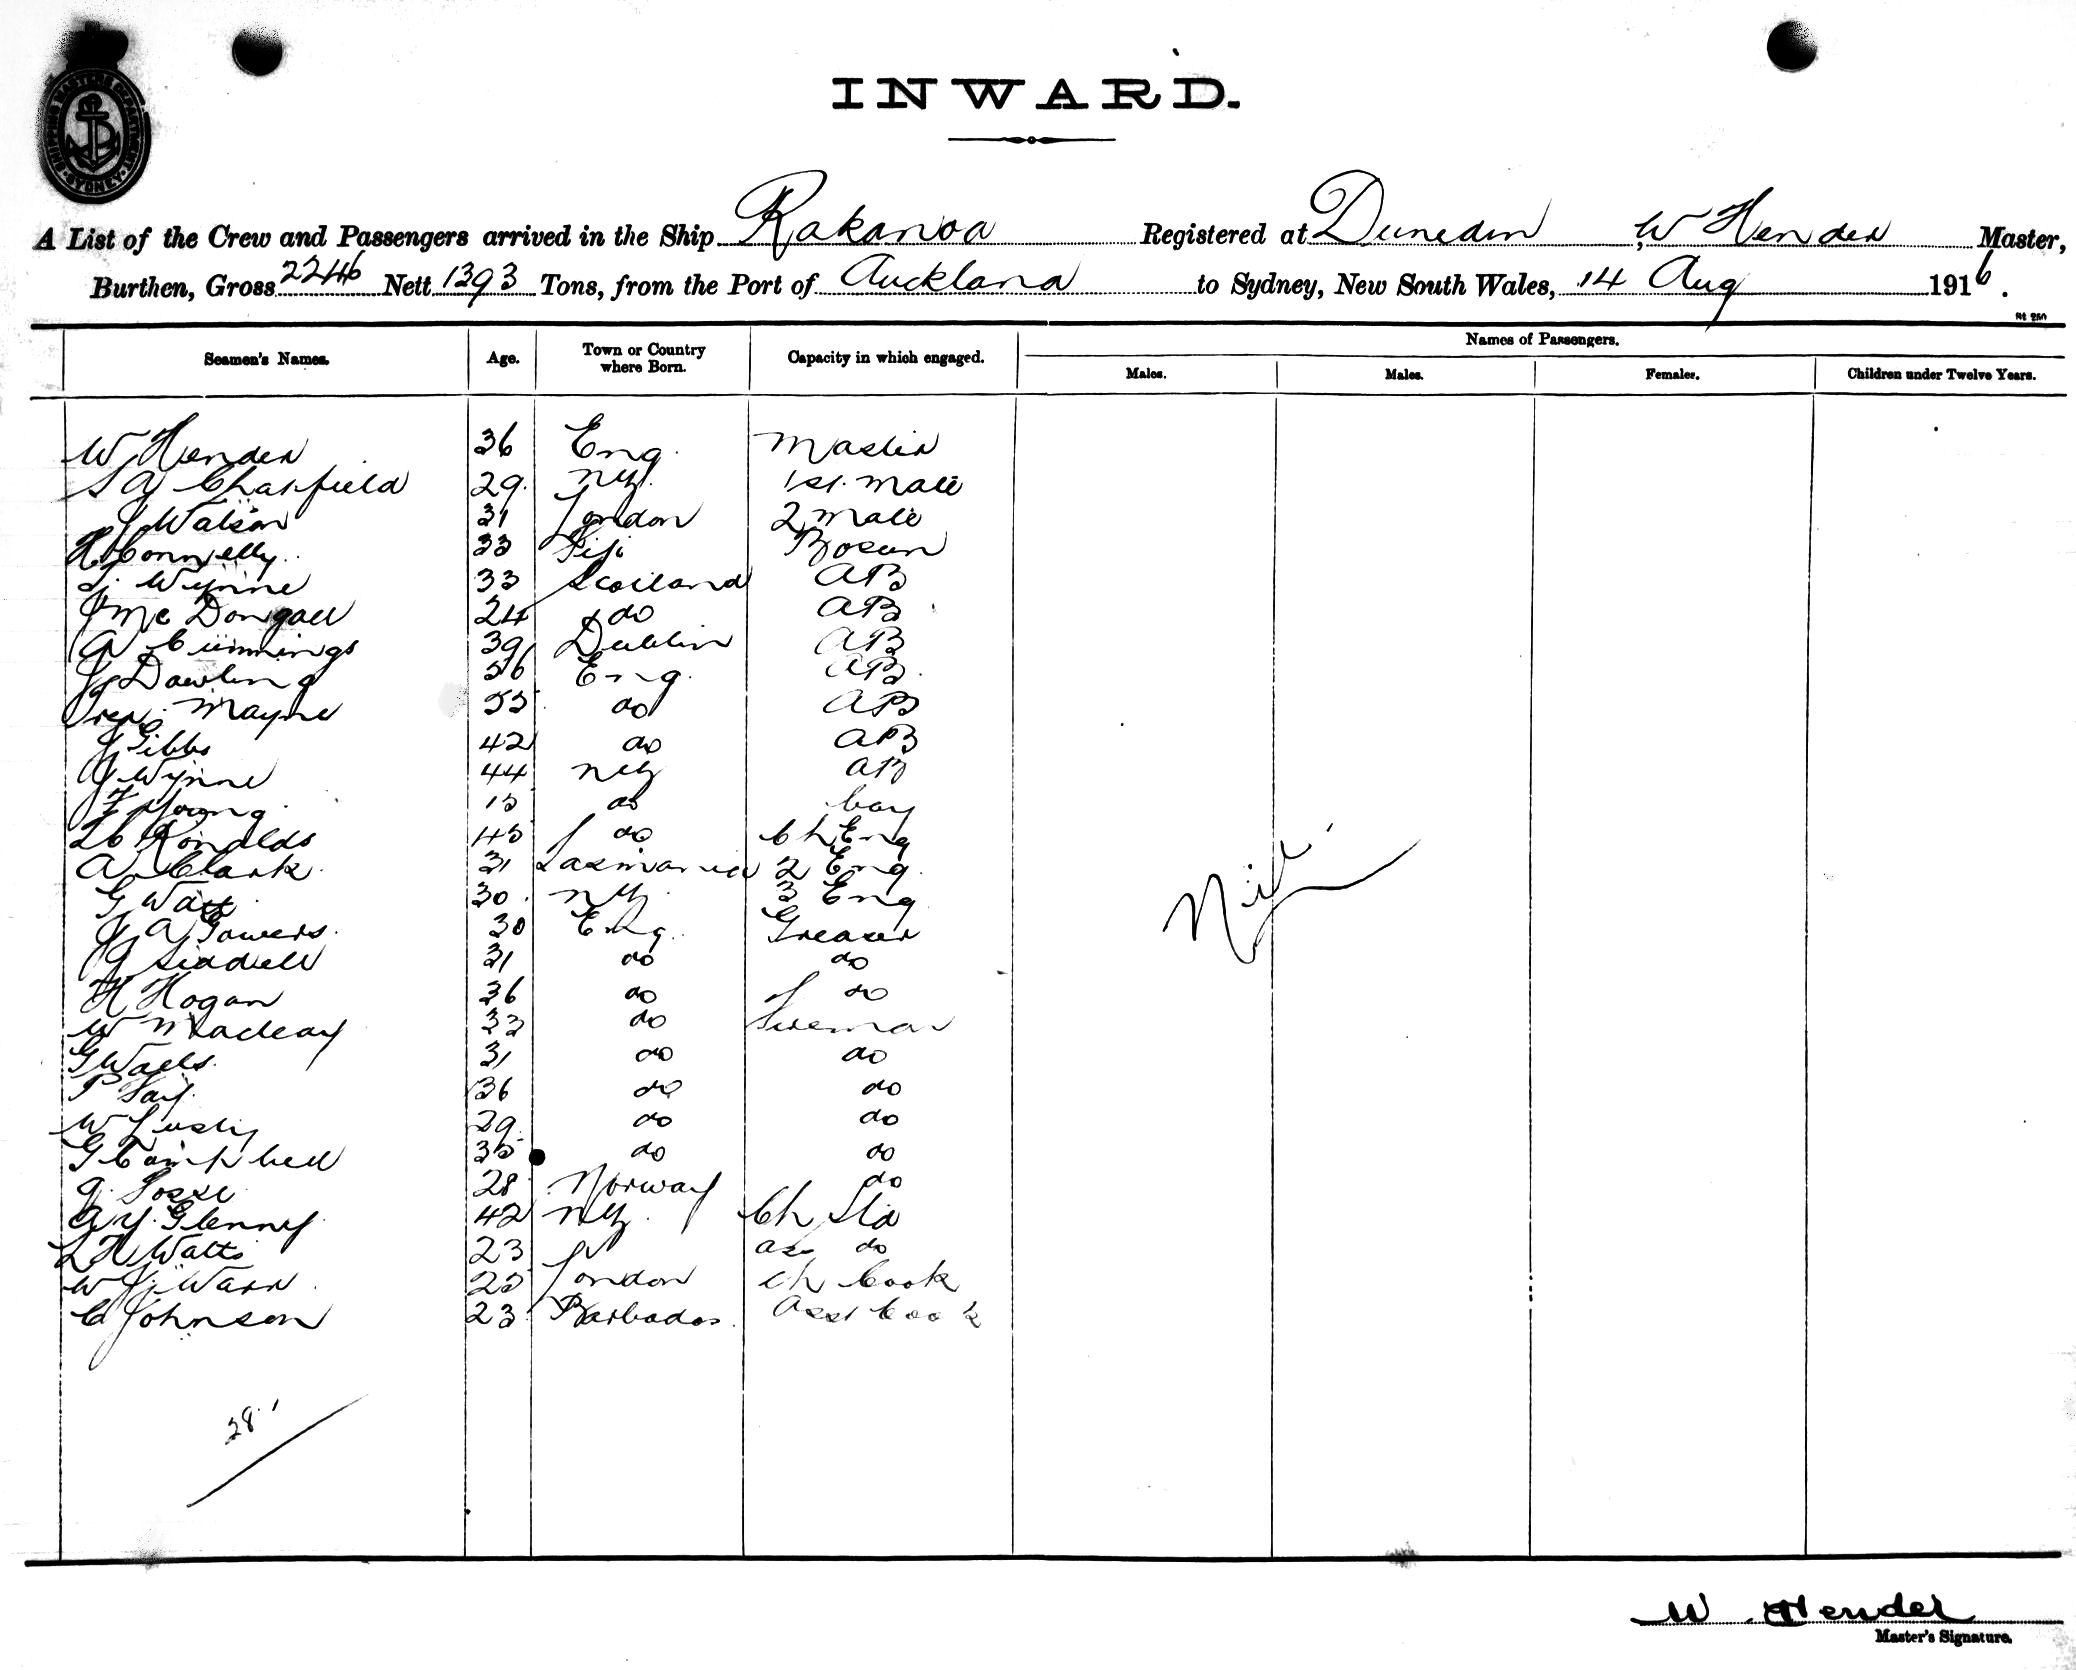 SHIPPING MASTERS DEPARTMENT
SYDNEY
INWARD.
A List of the Crew and Passengers arrived in the Ship Rakanoa Registered at Dunedin, W Hender Master,
Burthen, Gross 2246 Nett 1393 Tons, from the Port of Auckland to Sydney, New South Wales, 14 Aug 1916.
Seamen's Names. Age. Town or Country where Born. Capacity in which engaged. Names of Passengers.
Males. Males. Females. Children under Twelve Years.
W Hender 36 Eng. Master
S A Chatfield 29 NZ. 1st Mate
J Watson 31 London 2 Mate
H Connelly 33 Fiji Bosun
Wynne 33 Scotland AB
J McDongall 24 do AB
A Cummings 39 Dublin AB
J Dowling 56 Eng. AB.
Mayne 55 do AB
J Gibbs 42 do AB
J Wynne 44 NZ AB
F Young 15 do boy
Ronalds 45 do Ch Eng
A Clark 31 Tasmania 2 Eng
G Watt 30 NZ 3 Eng
J A Gowers 30 Eng. Greaser
J Siddell 31 do do
H Hogan 36 do do
W Macleay 33 do Fireman
G Walls 31 do do
P Fay 36 do do
W Lusty 29 do do
G Campbell 35 do do
Fosse 28 Norway do
A Y Glenny 42 NZ Ch Std
L H Watts 23 ass do
W J Warr 25 London Ch Cook
C Johnson 23 Barbados Asst Cook
Nil
28
W Hender
Master's Signature.